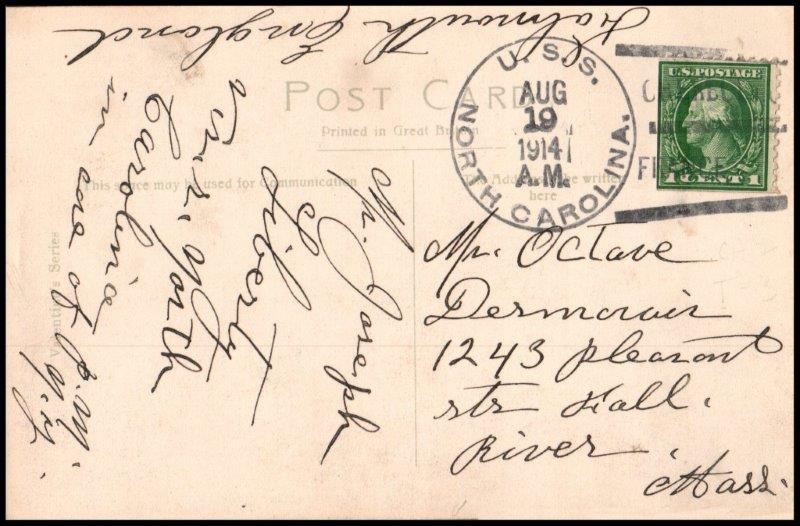 Falmouth England
POST CARD
Printed in Great Britain
This space may be used for Communication
The Address to be written
here
Valentine's Series
U.S.S.
AUG
19
1914
A.M.
NORTH CAROLINA.
U.S. POSTAGE
1 CENT 1
Mr. Joseph
Liberty
U.S.S. North
Carolina
in care of P.M.
N.Y.
Mr. Octave
1243 Pleasant
str Fall.
River.
Mass.